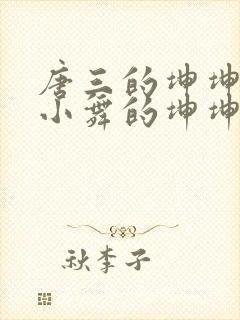 唐三的坤坤
小舞的坤坤
秋李子